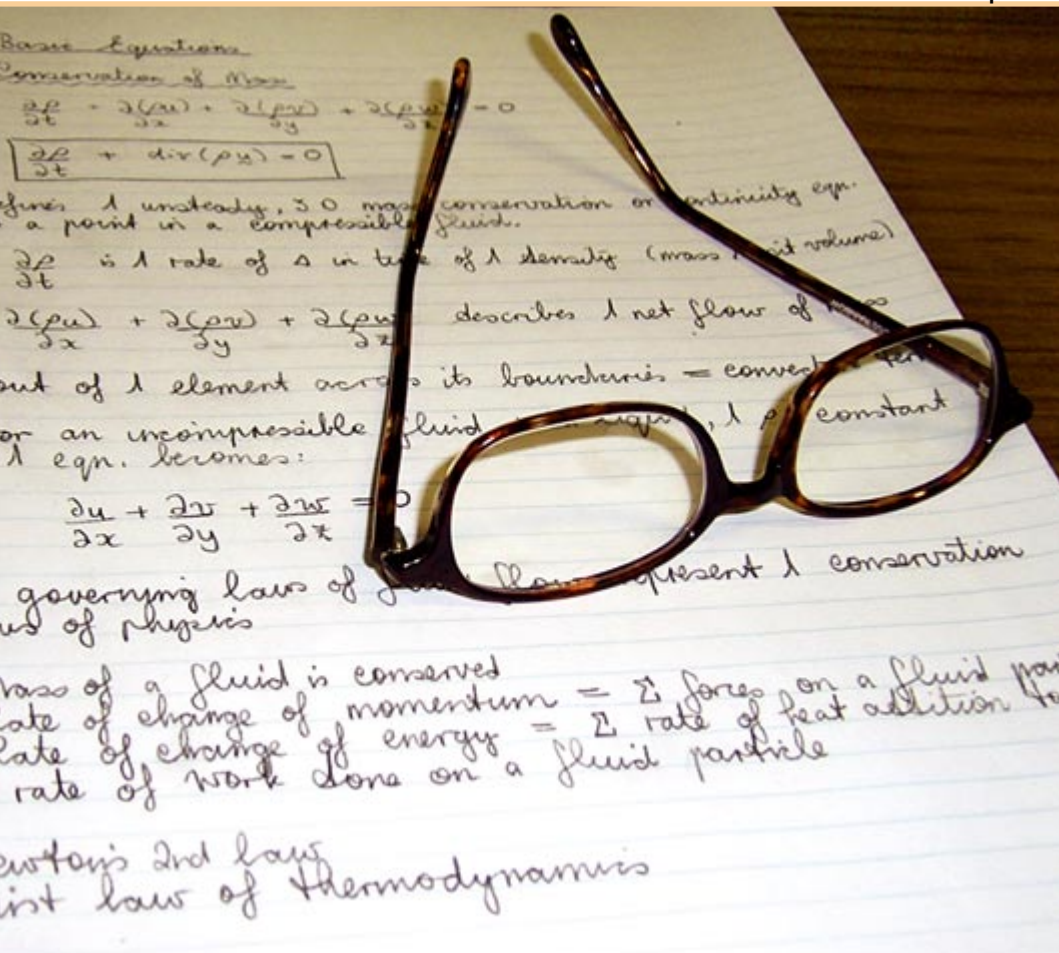 Basic Equations
Conservation of Mass
∂ρ/∂t + ∂(ρu)/∂x + ∂(ρv)/∂y + ∂(ρw)/∂z = 0
∂ρ/∂t + div(ρu) = 0
efines 1 unsteady, 3D mass conservation or continuity eqn.
a point in a compressible fluid.
∂ρ/∂t is 1 rate of Δ in time of 1 density (mass unit volume)
∂(ρu)/∂x + ∂(ρv)/∂y + ∂(ρw)/∂z describes 1 net flow of mass
out of 1 element across its boundaries = convec
or an incompressible fluid liquid, 1 ρ constant
1 eqn. becomes:
∂u/∂x + ∂v/∂y + ∂w/∂z = 0
governing laws of flow represent 1 conservation
ws of physics
mass of a fluid is conserved
rate of change of momentum = Σ forces on a fluid par
rate of change of energy = Σ rate of heat addition to
rate of work done on a fluid particle
ewton's 2nd law
irst law of thermodynamics